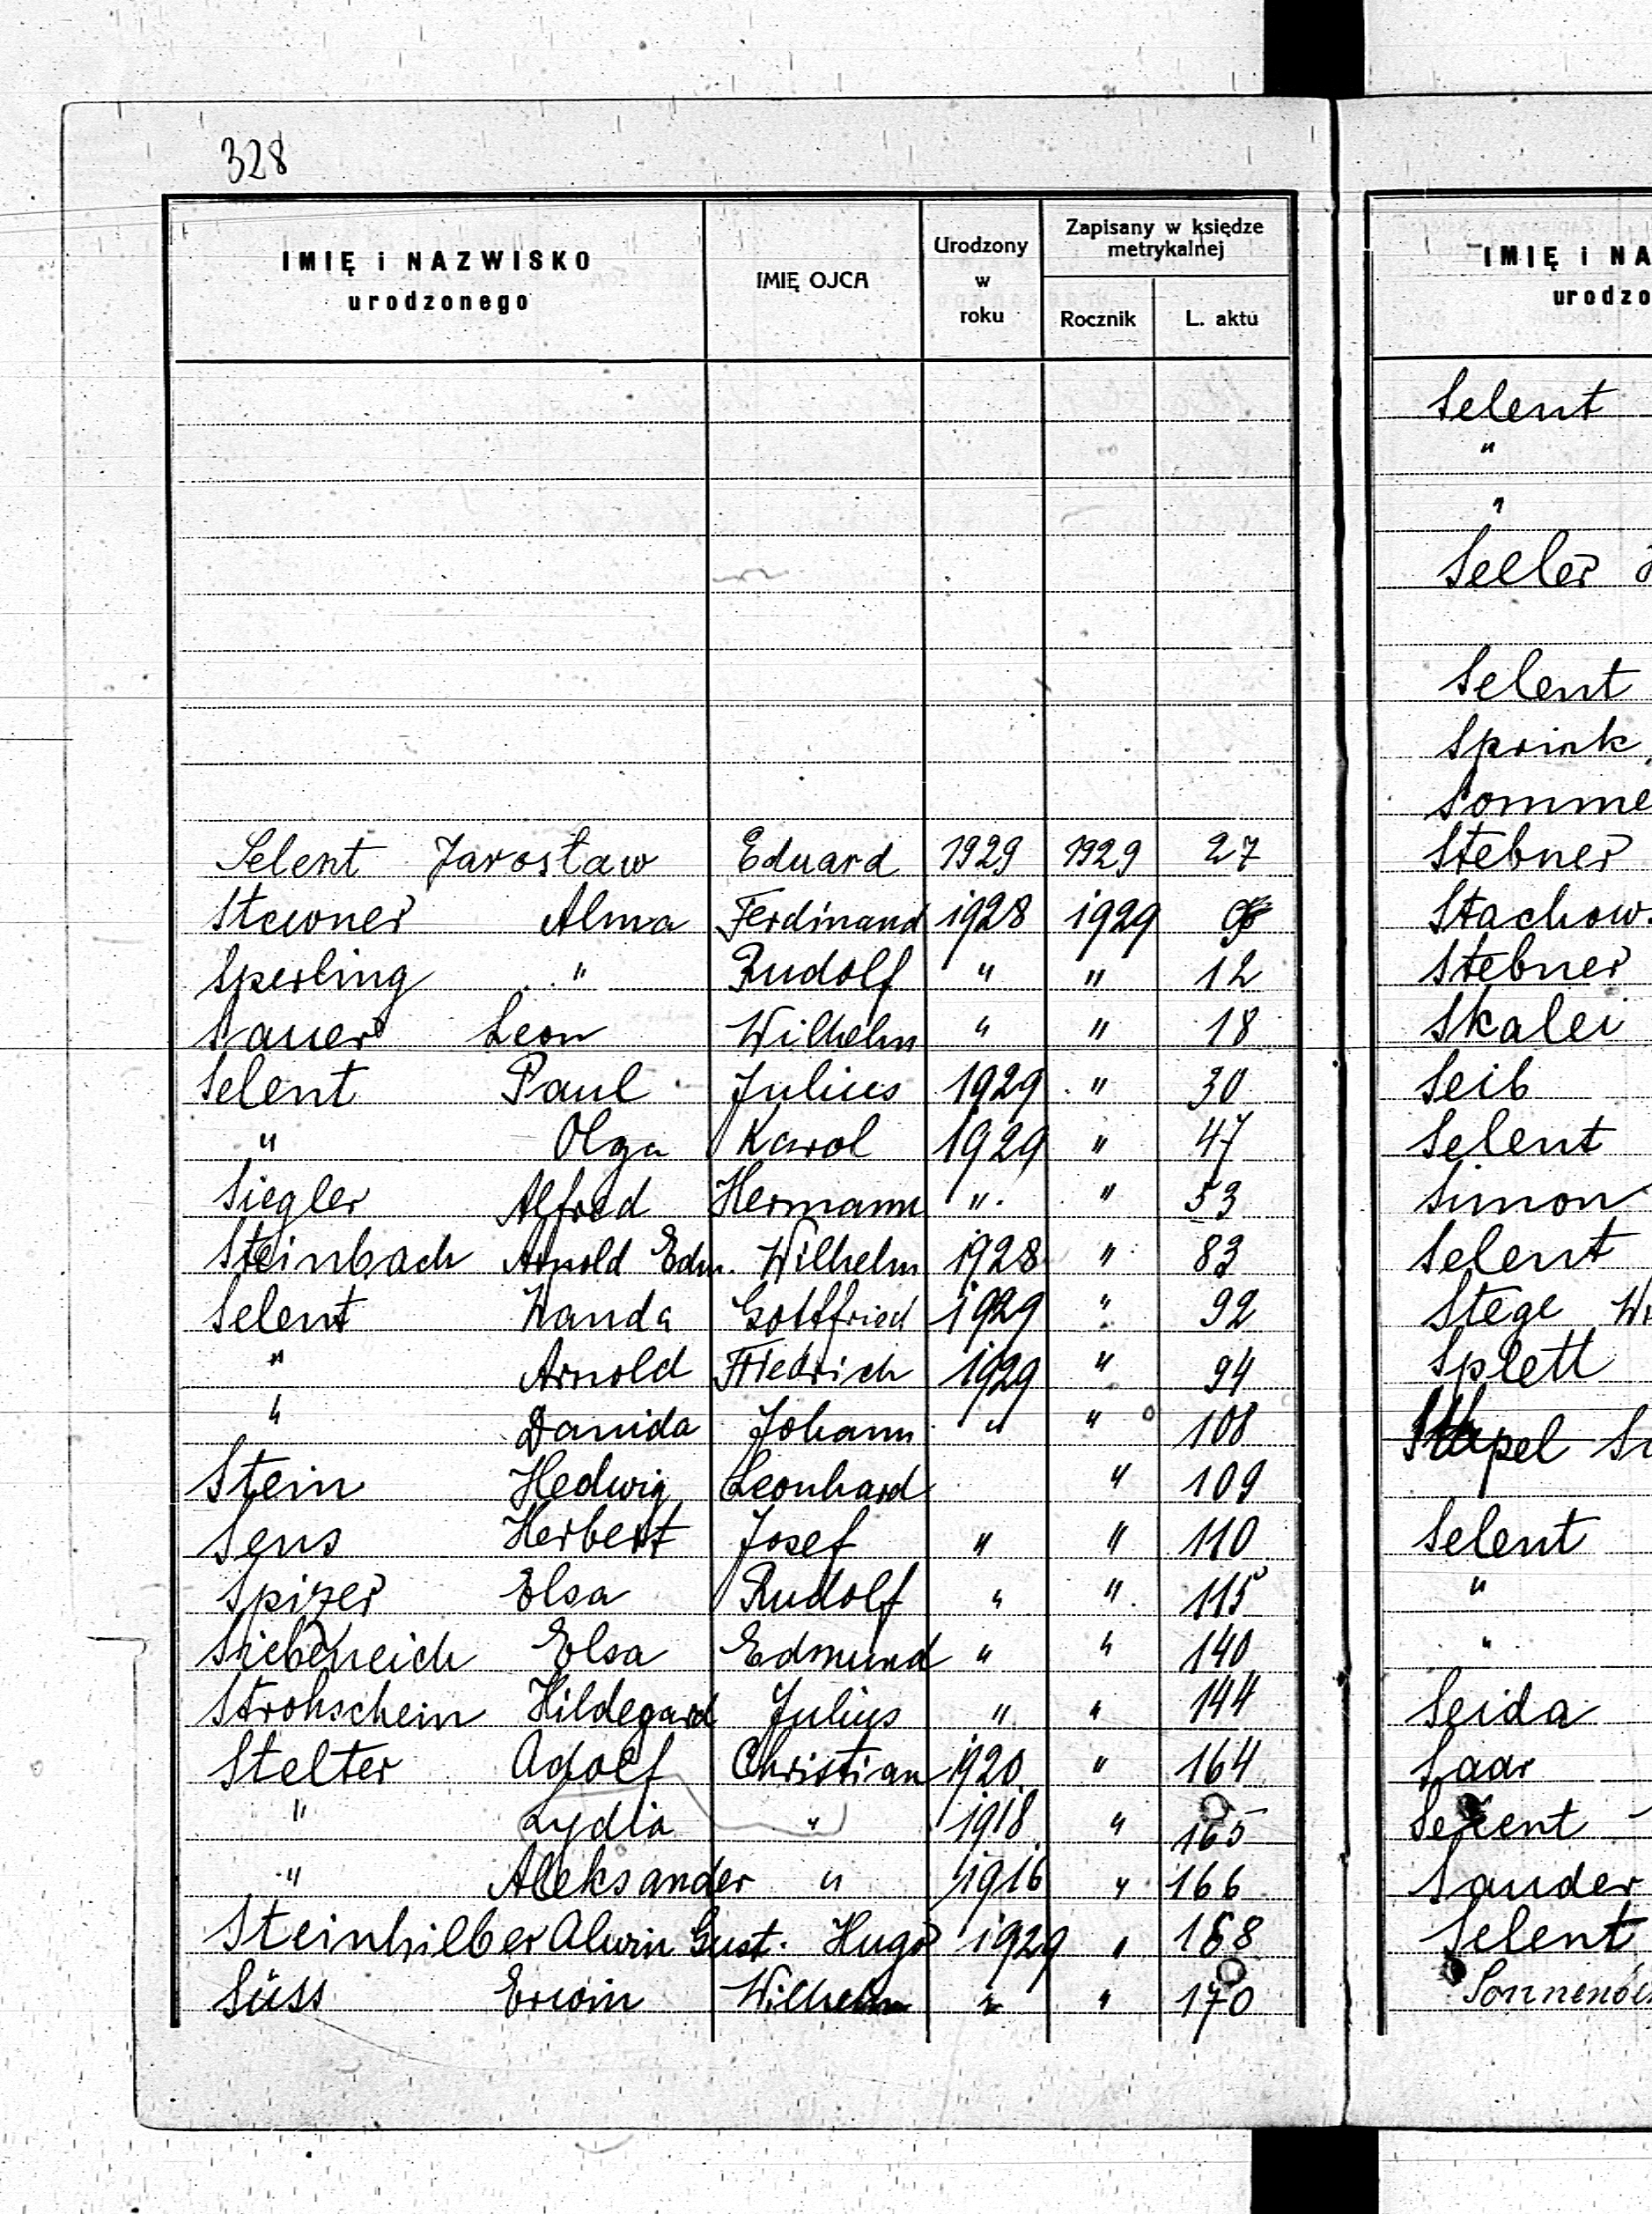 328
IMIĘ i NAZWISKO urodzonego IMIĘ OJCA Urodzony w roku Zapisany w księdze metrykalnej Rocznik L. aktu
Selent Jarosław Eduard 1929 1929 27
Stewner Alma Ferdinand 1928 1929
Sperling " Rudolf " " 12
Sauer Leon Wilhelm " " 18
Selent Paul Julius 1929 " 30
" Olga Karol 1929 " 47
Siegler Alfred Hermann " " 53
Steinbach Arnold Edm. Wilhelm 1928 " 83
Selent Wanda Gottfried 1929 " 92
" Arnold Friedrich 1929 " 94
" Danida Johann " " 108
Stein Hedwig Leonhard " 109
Sens Herbert Josef " " 110
Spizer Elsa Rudolf " " 115
Siebeneich Elsa Edmund " " 140
Strohschein Hildegard Julius " " 144
Stelter Adolf Christian 1920 " 164
" Lydia " 1918 " 165
" Aleksander " 1916 " 166
Steinhilber Alwin Gust. Hugo 1929 " 168
Süss Erwin Wilhelm " " 170
IMIĘ i NA
urodzo
Selent
"
"
Seeler
Selent
Sprink
Somme
Stebner
Stachow
Stebner
Skalei
Seib
Selent
Simon
Selent
Stege Wi
Splett
Stapel
Selent
"
"
Seida
Saar
Selent
Sander
Selent